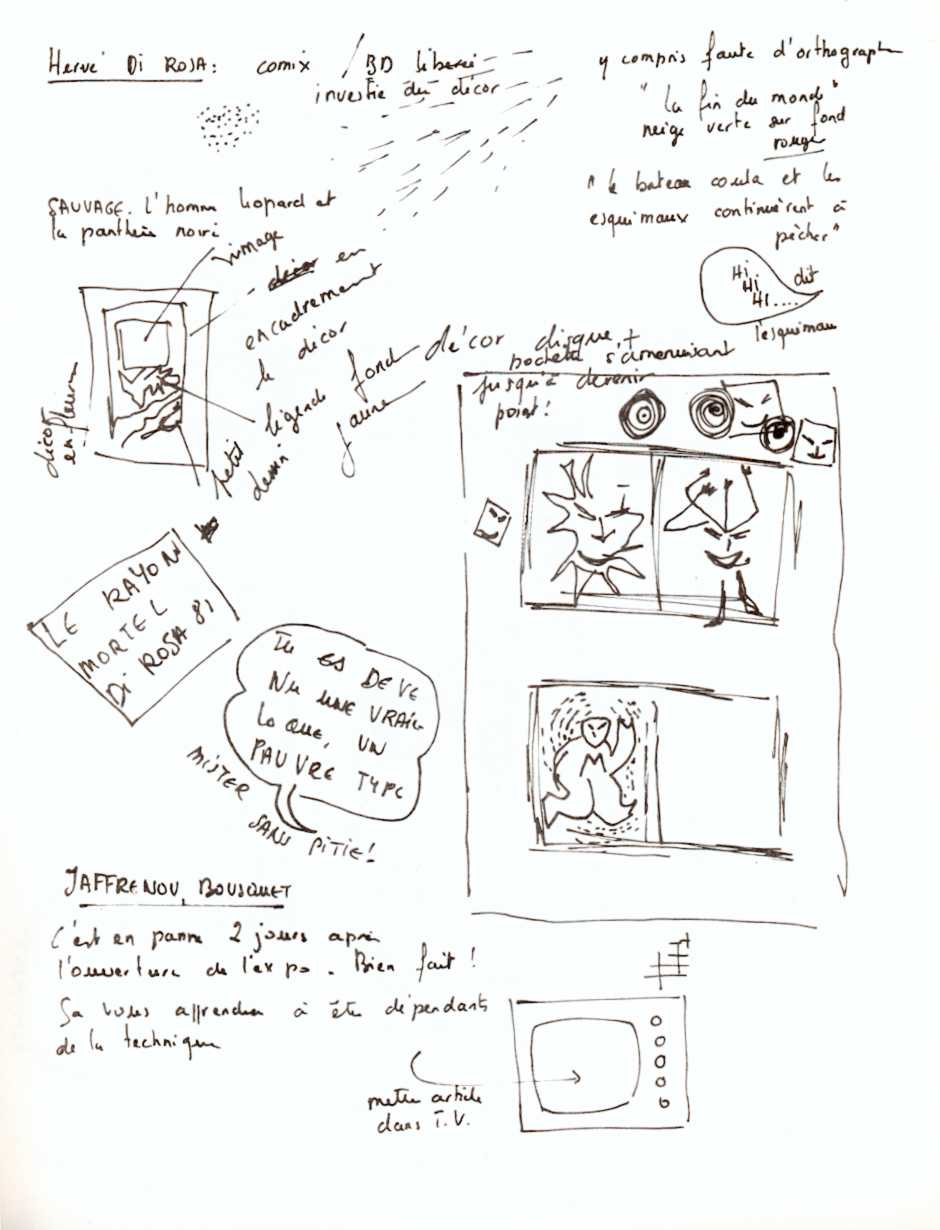 Hervé Di ROSA: comix / BD liberée
investie du décor
y compris faute d'orthographe
"la fin du monde"
neige verte sur fond
rouge
"le bateau coula et les
esquimaux continuèrent à
pêcher"
Hi
Hi
Hi....
dit
l'esquimau
SAUVAGE. L'homme leopard et
la panthère noire
image
décor en
encadrement
le décor
légende fond
jaune
petit
dessin
décor
en fleurs
décor disque +
pochette s'amenuisant
jusqu'à devenir
point!
LE RAYON
MORTEL
Di ROSA 81
Tu ES DEVE
NU UNE VRAIE
LOQUE, UN
PAUVRE TYPE
MISTER SANS PITIE!
JAFFRENOU, BOUSQUET
C'est en panne 2 jours après
l'ouverture de l'expo. Bien fait!
Sa vous apprendra à être dépendants
de la technique
mettre article
dans T.V.